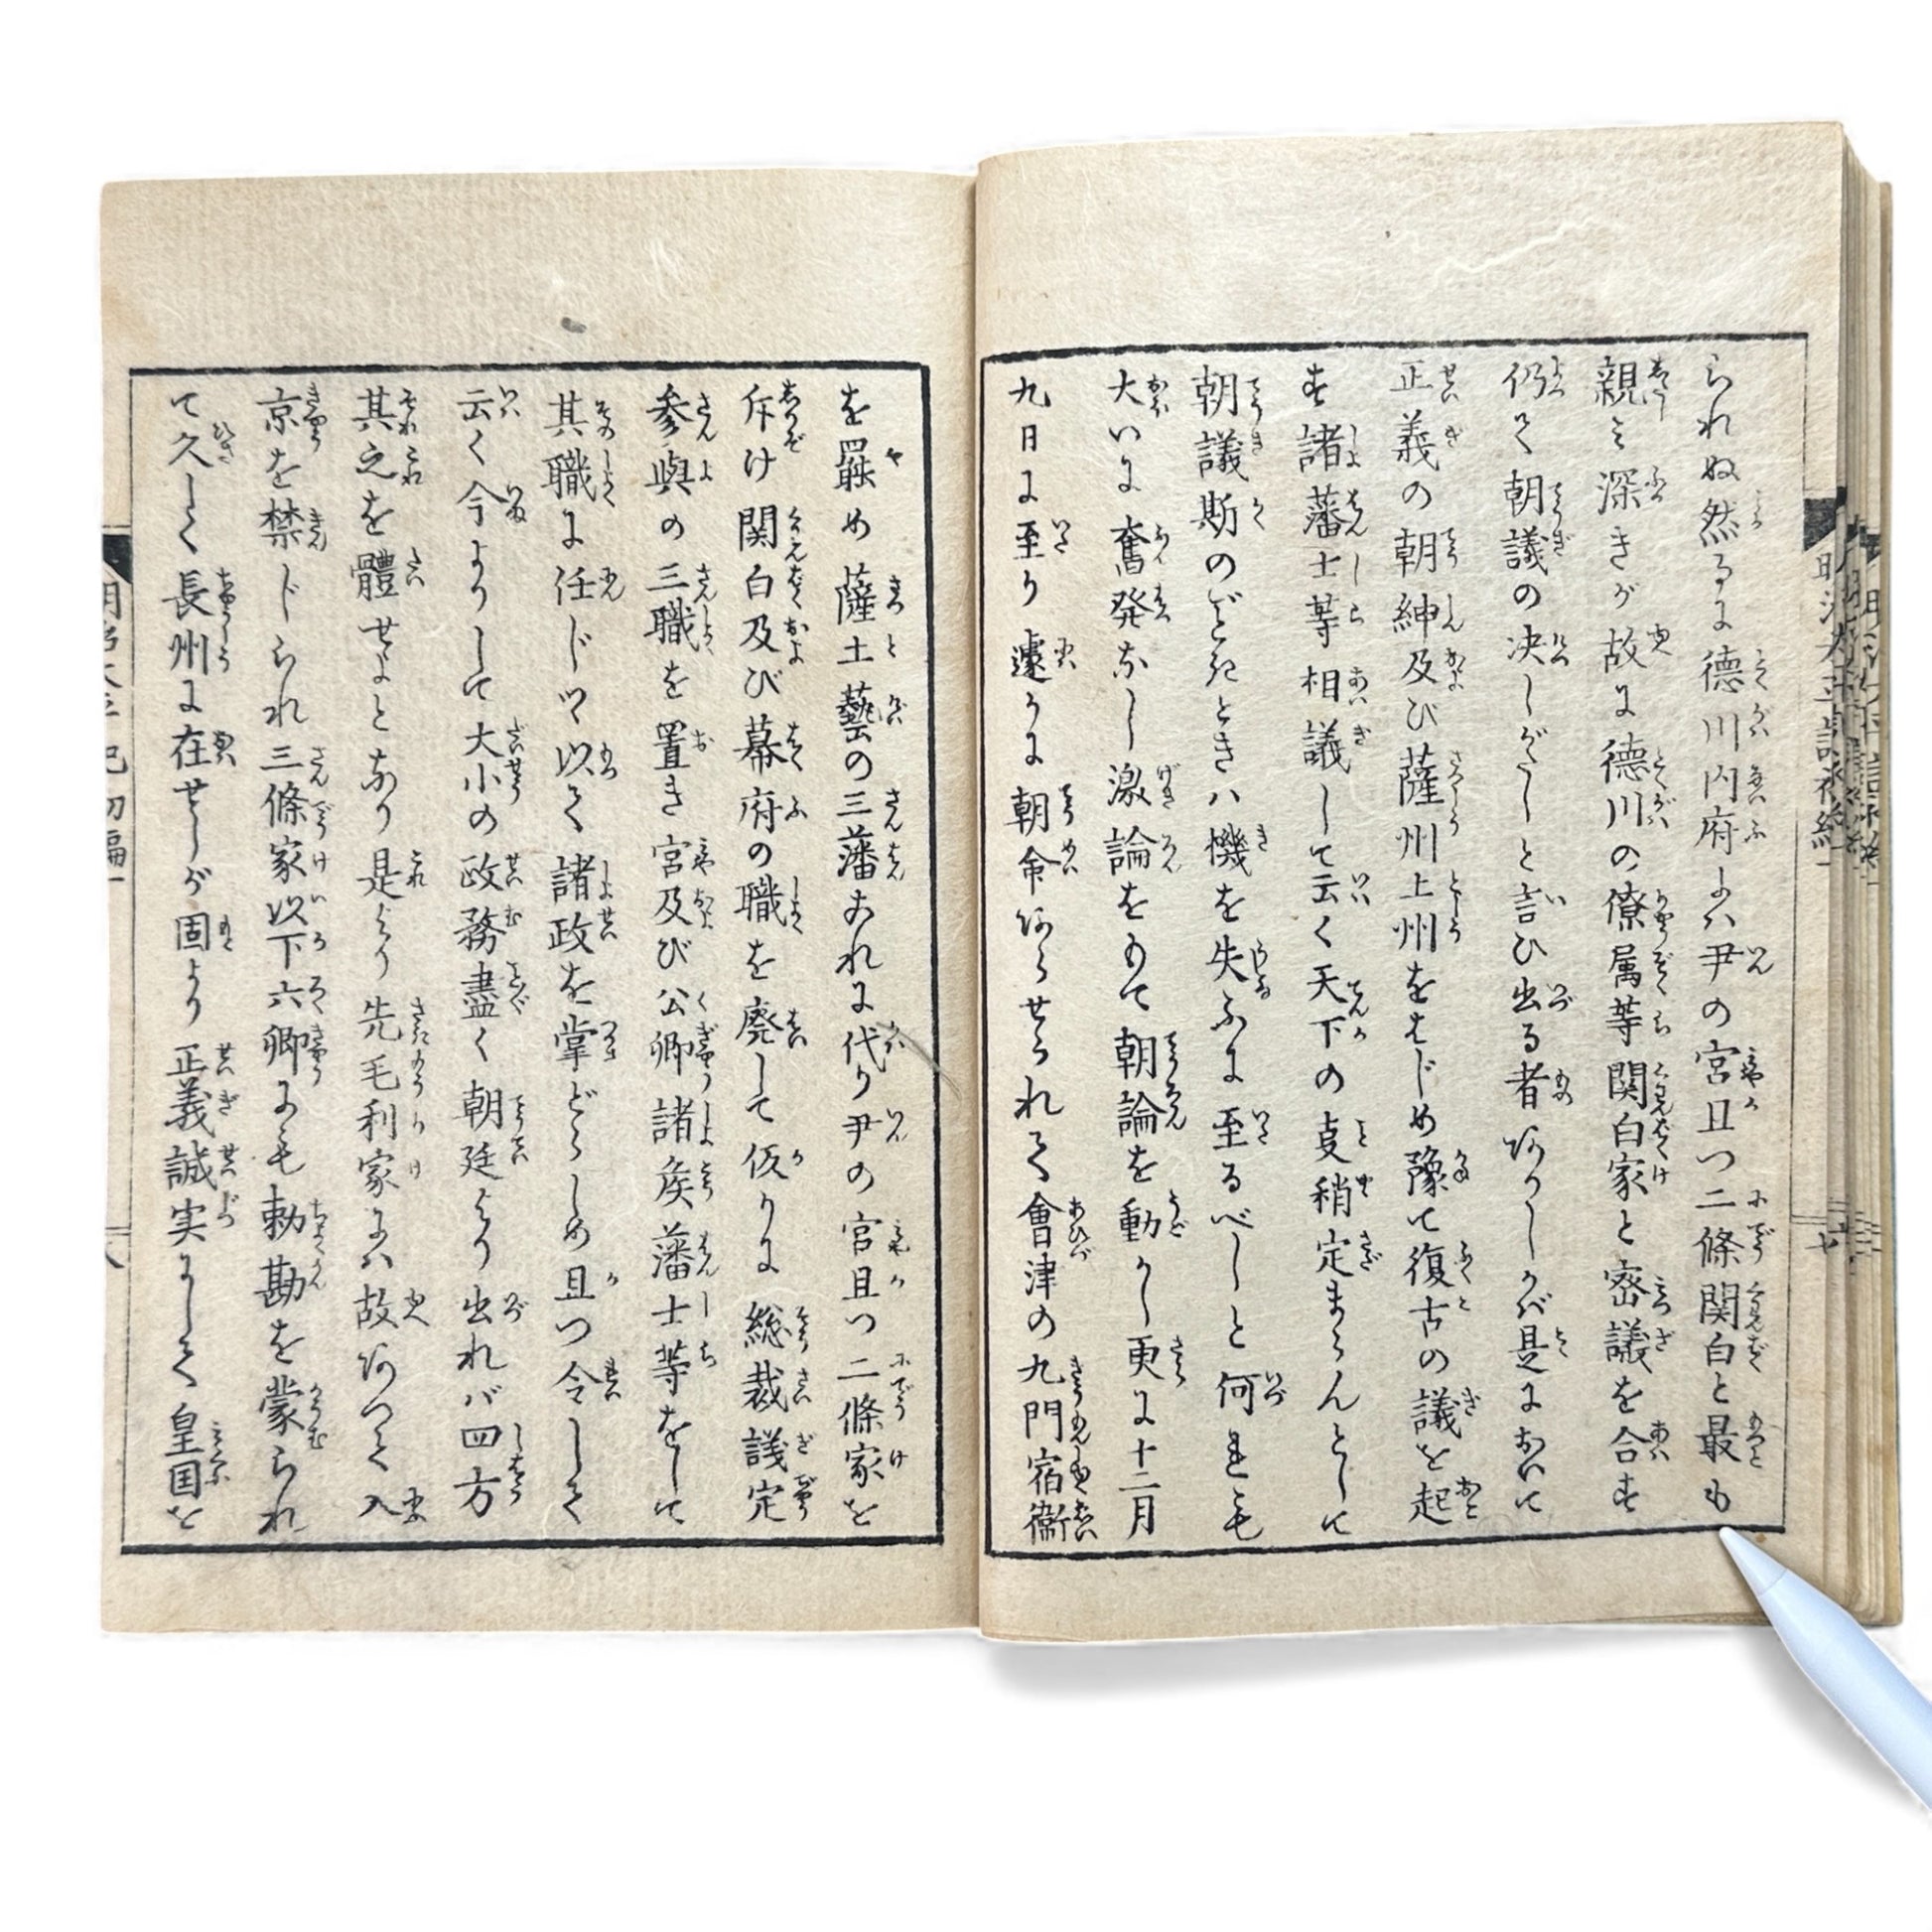 られぬ然るに徳川内府よハ尹の宮且つ二條関白と最も
親ミ深きが故に徳川の僚属等関白家と密議を合す
仍て朝議の决しがたしと言ひ出る者ありしかバ是において
正義の朝紳及び薩州土州をはじめ豫て復古の議を起
す諸藩士等相議して云く天下の叓稍定まらんとして
朝議斯のどきときハ機を失ふに至るべしと何れも
大いに奮発なし激論をもて朝論を動かし更に十二月
九日に至り遽かに朝命あらせられて會津の九門宿衞
を罷め薩土藝の三藩これに代り尹の宮且つ二條家を
斥け関白及び幕府の職を廃して仮りに総裁議定
参與の三職を置き宮及び公卿諸矦藩士等をして
其職に任じツ以て諸政を掌どらしめ且つ令して
云く今よりして大小の政務盡く朝廷より出れバ四方
其之を體せよとなり是より先毛利家にハ故あつて入
京を禁じられ三條家以下六卿にも勅勘を蒙られ
て久しく長州に在せしが固より正義誠実にして皇国を
明治太平記初編一